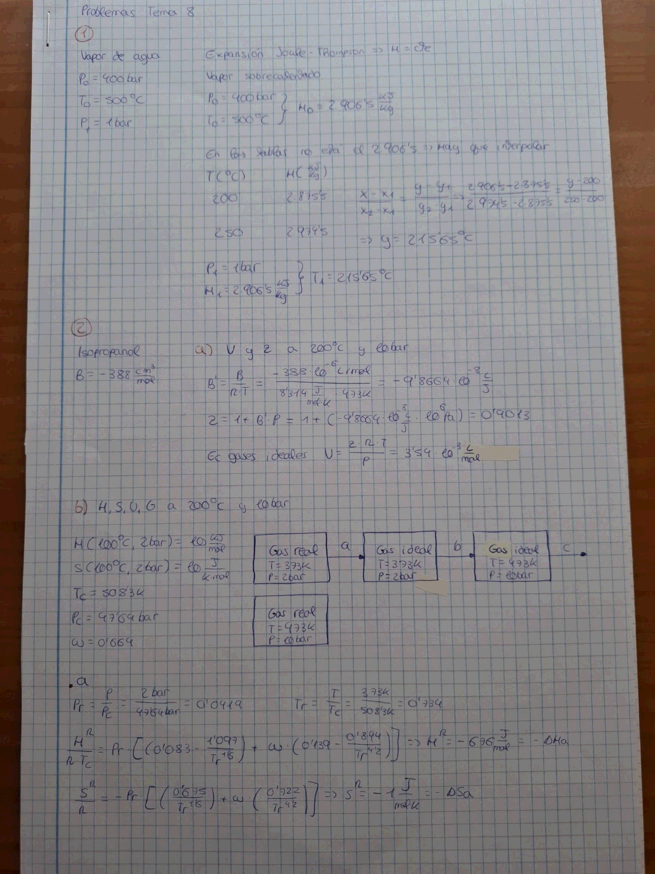 Problemas Tema 8
①
Vapor de agua Expansión Joule-Thompson => H = cte
P₀ = 400 bar Vapor sobrecalentado
T₀ = 500°C P₀ = 400 bar } H₀ = 2.906'5 kJ/kg
P₁ = 1 bar T₀ = 500°C
En las tablas no esta el 2.906'5 => Hay que interpolar
T(°C) H(kJ/kg)
200 2.875'5 (x - x₁)/(x₂ - x₁) = (y - y₁)/(y₂ - y₁) => (2.906'5 - 2.875'5)/(2.974'5 - 2.875'5) = (y - 200)/(250 - 200)
250 2.974'5 => y = 215'65°C
P₁ = 1 bar } T₁ = 215'65°C
H₁ = 2.906'5 kJ/kg
②
Isopropanol a) V y Z a 200°C y 10 bar
B = -388 cm³/mol B' = B/(R·T) = (-388·10⁻⁶ L/mol)/(8'314 J/mol·K · 473K) = -9'8664·10⁻⁸ L/J
Z = 1 + B'·P = 1 + (-9'8664·10⁻⁸ L/J · 10⁶ Pa) = 0'9013
Ec gases ideales V = Z·R·T/P = 3'54·10⁻³ L/mol
b) H, S, U, G a 200°C y 10 bar
H(100°C, 2bar) = 10 kJ/mol
S(100°C, 2bar) = 10 J/K·mol
Tc = 508'3K
Pc = 47'64 bar
ω = 0'664
Gas real T = 373K P = 2bar
a
Gas ideal T = 373K P = 2bar
b
Gas ideal T = 473K P = 10bar
c
Gas real T = 473K P = 10bar
· a
Pr = P/Pc = 2 bar/47'64 bar = 0'0419 Tr = T/Tc = 373K/508'3K = 0'734
Hᴿ/(R·Tc) = Pr·[(0'083 - 1'097/Tr^1'6) + ω·(0'139 - 0'894/Tr^4'2)] => Hᴿ = -676 J/mol = -ΔHa
Sᴿ/R = -Pr[(0'675/Tr^2'6) + ω(0'722/Tr^4'2)] => Sᴿ = -1 J/mol·K = -ΔSa